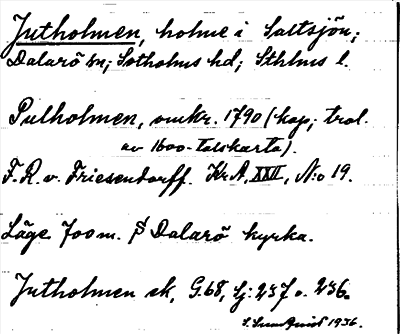 Jutholmen, holme i Saltsjön;
Dalarö sn; Sotholms hd; Sthlms l.
Pulholmen, omkr. 1790 (kop; trol.
av 1600-talskarta).
F. R. v. Friesendorff. Kr A, XXII, No 19.
Läge 700 m. S Dalarö kyrka.
Jutholmen ek, G. 68, Sj: 237 o. 236.
S. Lundqvist 1936.